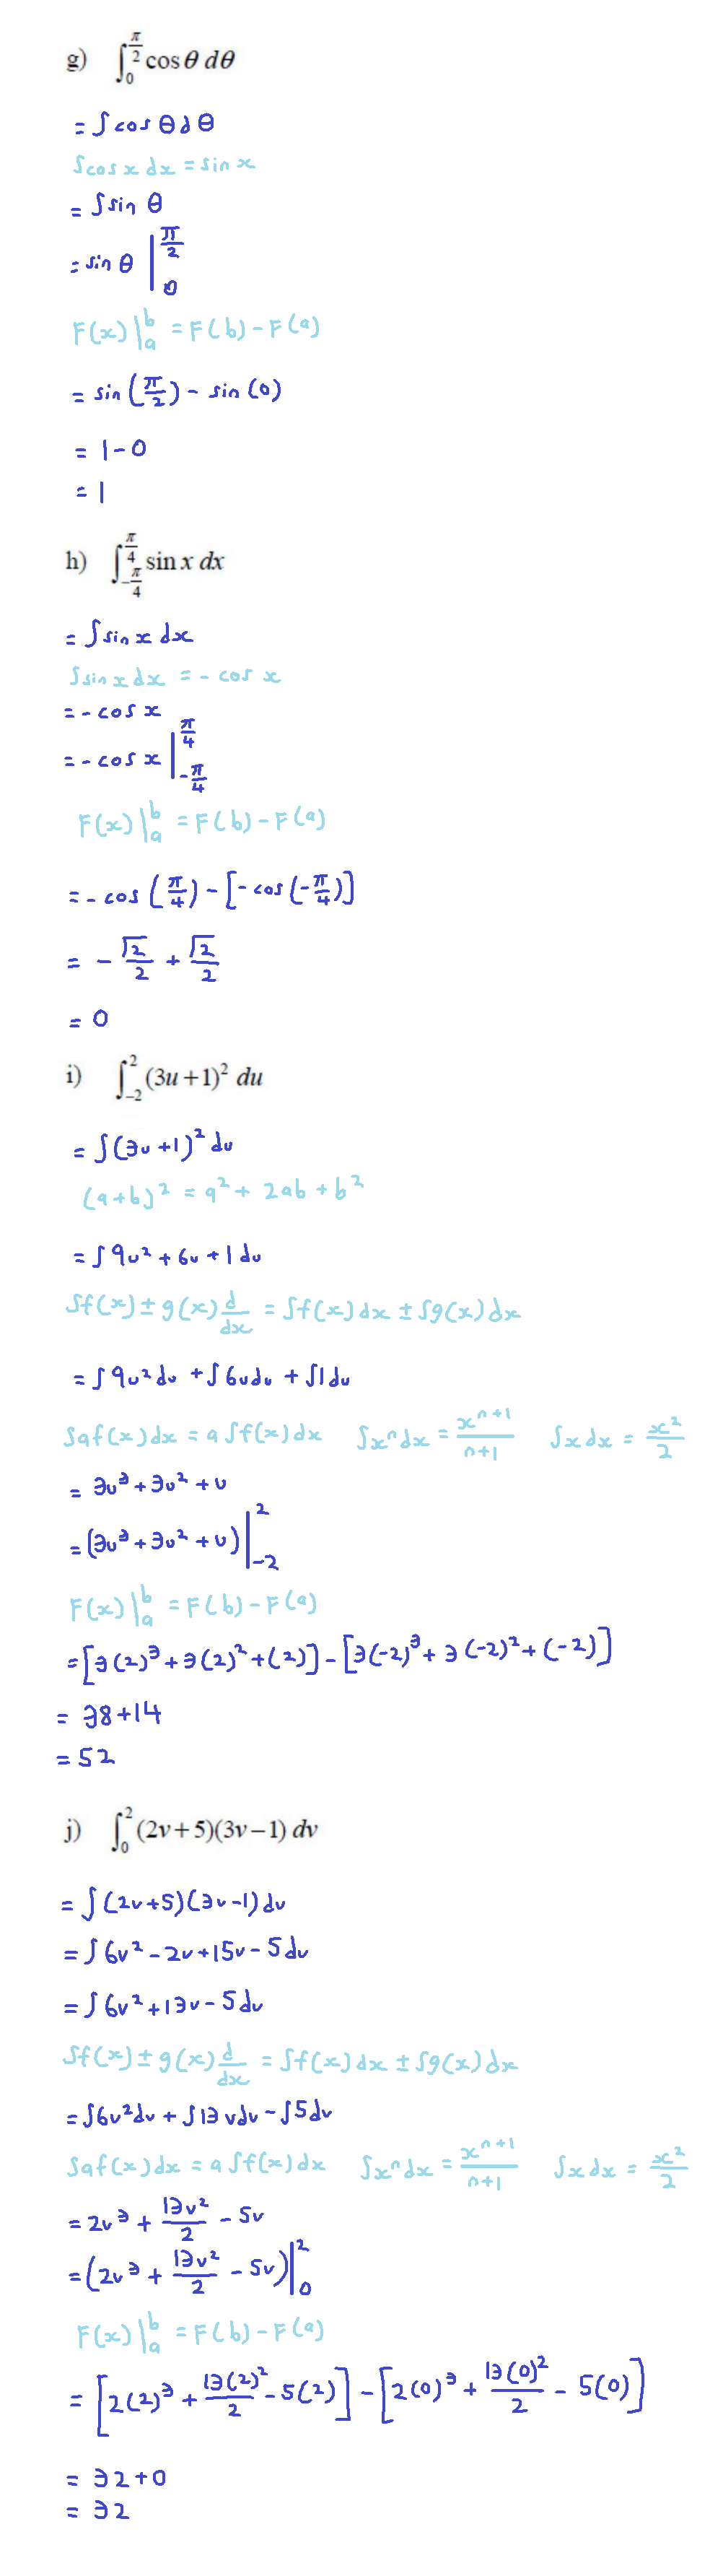 g) ∫_0^{π/2} cos θ dθ
= ∫ cos θ d θ
∫cos x dx = sin x
= ∫ sin θ
= sin θ |_0^{π/2}
F(x) |_a^b = F(b) - F(a)
= sin (π/2) - sin (0)
= 1 - 0
= 1
h) ∫_{-π/4}^{π/4} sin x dx
= ∫ sin x dx
∫sin x dx = - cos x
= - cos x
= - cos x |_{-π/4}^{π/4}
F(x) |_a^b = F(b) - F(a)
= - cos (π/4) - [- cos (-π/4)]
= - √2/2 + √2/2
= 0
i) ∫_{-2}^{2} (3u+1)² du
= ∫(3u+1)² du
(a+b)² = a² + 2ab + b²
= ∫ 9u² + 6u + 1 du
∫f(x) ± g(x) d/dx = ∫f(x) dx ± ∫g(x) dx
= ∫ 9u² du + ∫ 6u du + ∫1 du
∫af(x) dx = a ∫f(x) dx ∫x^n dx = x^{n+1}/(n+1) ∫x dx = x²/2
= 3u³ + 3u² + u
= (3u³ + 3u² + u) |_{-2}^{2}
F(x) |_a^b = F(b) - F(a)
= [3(2)³ + 3(2)² + (2)] - [3(-2)³ + 3(-2)² + (-2)]
= 38 + 14
= 52
j) ∫_0^2 (2v+5)(3v-1) dv
= ∫ (2v+5)(3v-1) dv
= ∫ 6v² - 2v + 15v - 5 dv
= ∫ 6v² + 13v - 5 dv
∫f(x) ± g(x) d/dx = ∫f(x) dx ± ∫g(x) dx
= ∫6v² dv + ∫13 v dv - ∫5 dv
∫af(x) dx = a ∫f(x) dx ∫x^n dx = x^{n+1}/(n+1) ∫x dx = x²/2
= 2v³ + 13v²/2 - 5v
= (2v³ + 13v²/2 - 5v) |_0^2
F(x) |_a^b = F(b) - F(a)
= [2(2)³ + 13(2)²/2 - 5(2)] - [2(0)³ + 13(0)²/2 - 5(0)]
= 32 + 0
= 32